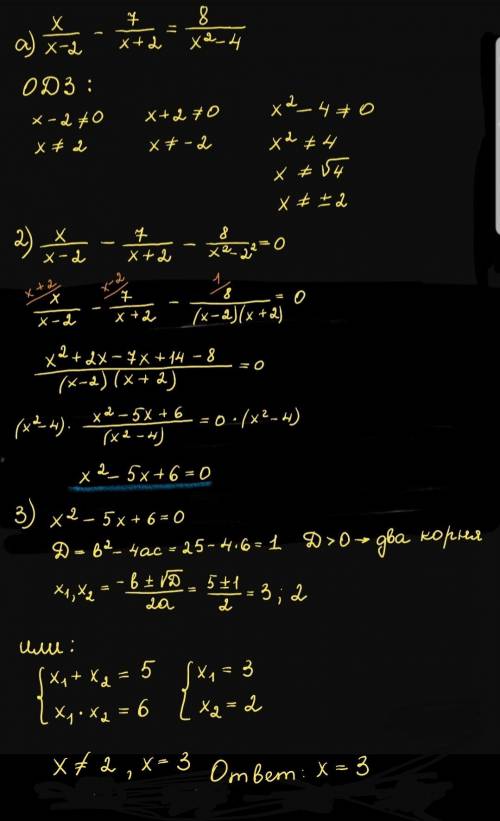 а) x/(x-2) - 7/(x+2) = 8/(x²-4)
ОДЗ:
x-2≠0 x+2≠0 x²-4≠0
x≠2 x≠-2 x²≠4
x≠√4
x≠±2
2) x/(x-2) - 7/(x+2) - 8/(x²-2²) = 0
x+2 x-2 1
x/(x-2) - 7/(x+2) - 8/((x-2)(x+2)) = 0
(x²+2x-7x+14-8)/((x-2)(x+2)) = 0
(x²-4)· (x²-5x+6)/(x²-4) = 0·(x²-4)
x²-5x+6=0
3) x²-5x+6=0
D=b²-4ac=25-4·6=1 D>0→два корня
x₁,x₂ = (-b±√D)/2a = (5±1)/2 = 3; 2
или:
{x₁+x₂=5 {x₁=3
{x₁·x₂=6 {x₂=2
x≠2, x=3 Ответ: x=3